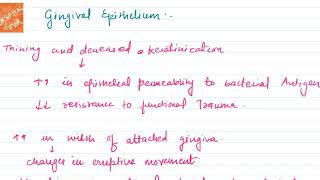 Gingival Epithelium:-
Thining and decreased keratinication
↓
↑↑ in epithelical permeability to bacterial Antigen
↓↓ resistance to functional Trauma.
↑↑ in width of attached gingiva
↓
changes in eruptive movement